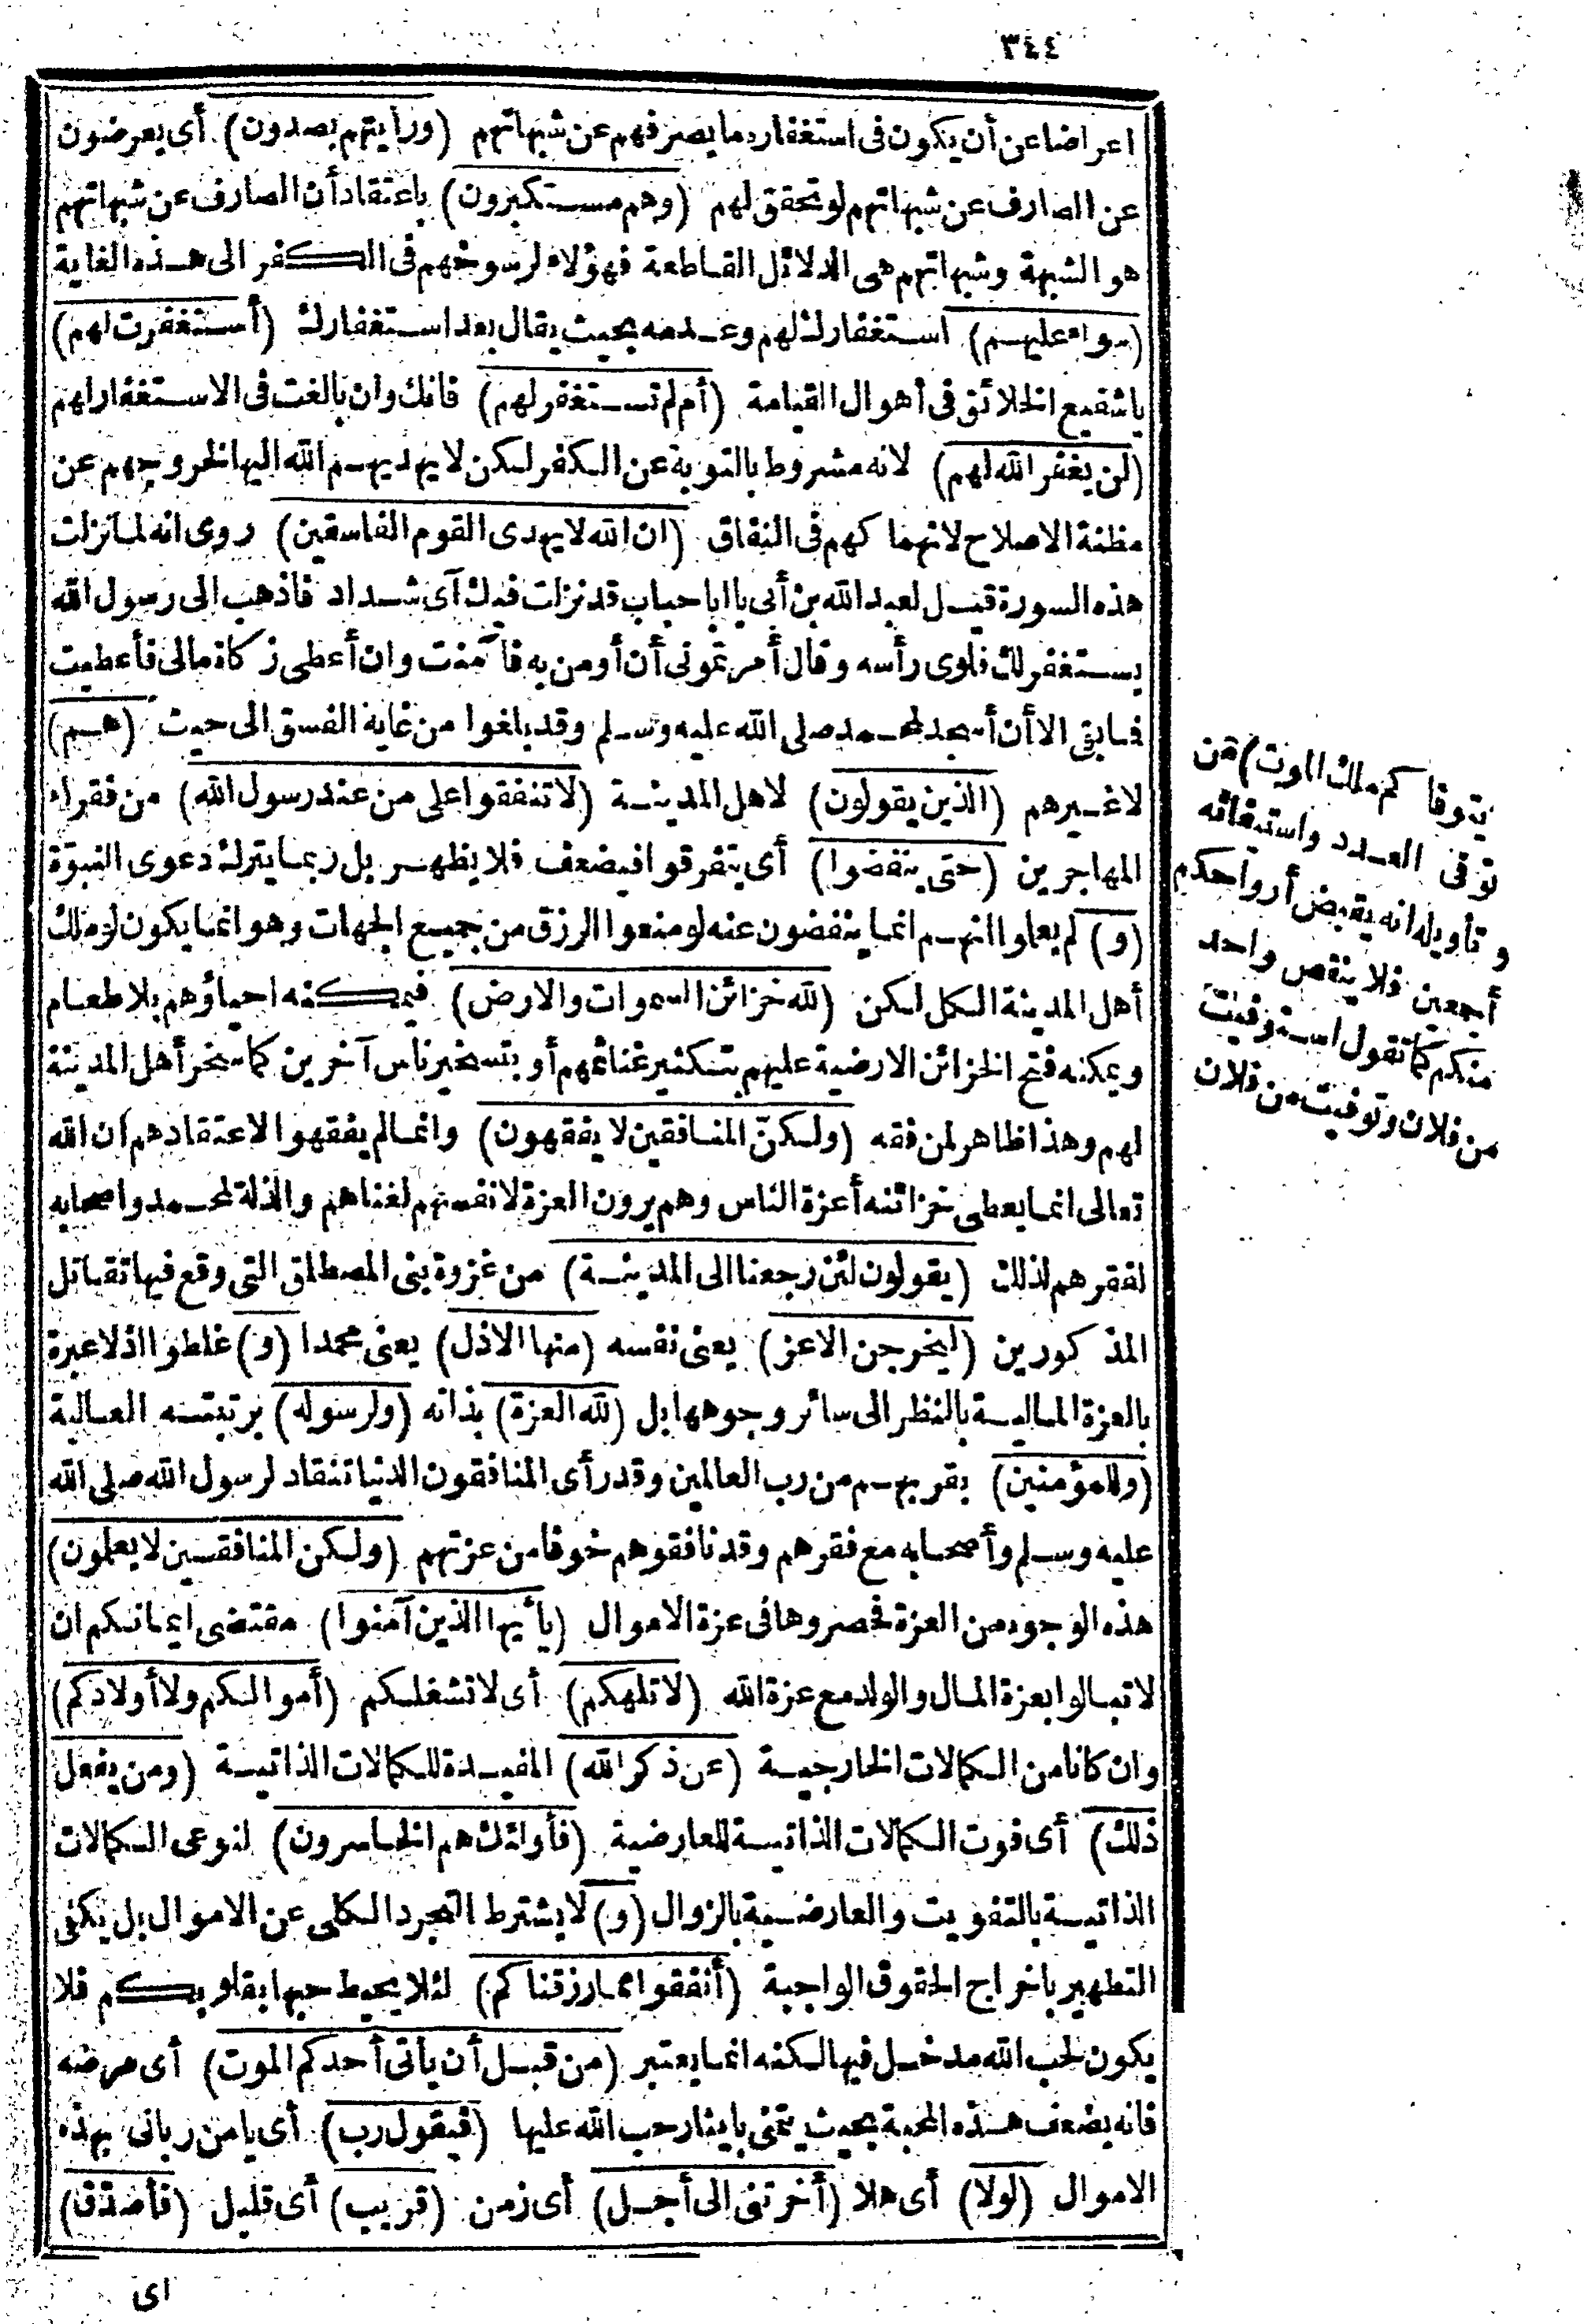 ٣٤٤
اعراضا عن أن يكون في استغفاره ما يصرفهم عن شبهاتهم (ورأيتهم يصدون) أى يعرضون
عن الصارف عن شبهاتهم لو تحقق لهم (وهم مستكبرون) باعتقاد أن الصارف عن شبهاتهم
هو الشبهة وشبهاتهم هى الدلائل القاطعة فهؤلاء لرسوخهم فى الكفر الى هذه الغاية
(سواء عليهم) استغفارك لهم وعدمه بحيث يقال بعد استغفارك (أستغفرت لهم)
يا شفيع الخلائق فى أهوال القيامة (أم لم تستغفر لهم) فانك وان بالغت فى الاستغفار لهم
(لن يغفر الله لهم) لانه مشروط بالتوبة عن الكفر لكن لا يهديهم الله اليها لخروجهم عن
مظنة الاصلاح لانهما كهم فى النفاق (ان الله لا يهدى القوم الفاسقين) روى انه لما نزلت
هذه السورة قيل لعبد الله بن أبى يا ابا حباب قد نزلت فيك آى شداد فاذهب الى رسول الله
يستغفر لك فلوى رأسه وقال أمرتمونى أن أومن به فآمنت وان أعطى زكاة مالى فأعطيت
فما بقى الا أن أسجد لمحمد صلى الله عليه وسلم وقد بلغوا من غاية الفسق الى حيث (هم)
لا غيرهم (الذين يقولون) لاهل المدينة (لا تنفقوا على من عند رسول الله) من فقراء
المهاجرين (حتى ينفضوا) أى يتفرقوا فيضعف فلا يظهر بل ربما يترك دعوى النبوّة
(و) لم يعلموا انهم انما ينفضون عنه لو منعوا الرزق من جميع الجهات وهو انما يكون لو ملك
أهل المدينة الكل لكن (لله خزائن السموات والارض) فيمكنه احياؤهم بلا طعام
ويمكنه فتح الخزائن الارضية عليهم بتكثير غنائمهم أو بتسخير ناس آخرين كما سخر أهل المدينة
لهم وهذا ظاهر لمن فقه (ولكنّ المنافقين لا يفقهون) وانما لم يفقهوا الاعتقادهم ان الله
تعالى انما يعطى خزائنه أعزة الناس وهم يرون العزة لانفسهم لغناهم والذلة لمحمد واصحابه
لفقرهم لذلك (يقولون لئن رجعنا الى المدينة) من غزوة بنى المصطلق التى وقع فيها تقاتل
المذكورين (ليخرجن الاعز) يعنى نفسه (منها الاذل) يعنى محمدا (و) غلطوا اذ لا عبرة
بالعزة المالية بالنظر الى سائر وجوهها بل (لله العزة) بذاته (ولرسوله) برتبته العالية
(وللمؤمنين) بقربهم من رب العالمين وقد رأى المنافقون الدنيا تنقاد لرسول الله صلى الله
عليه وسلم وأصحابه مع فقرهم وقد نافقوهم خوفا من عزتهم (ولكن المنافقين لا يعلمون)
هذه الوجوه من العزة فحصروها فى عزة الاموال (يأيها الذين آمنوا) مقتضى ايمانكم ان
لا تبالوا بعزة المال والولد مع عزة الله (لا تلهكم) أى لا تشغلكم (أموالكم ولا أولادكم)
وان كانا من الكمالات الخارجية (عن ذكر الله) المفيدة للكمالات الذاتية (ومن يفعل
ذلك) أى فوت الكمالات الذاتية للعارضية (فأولئك هم الخاسرون) لنوعى الكمالات
الذاتية بالتفويت والعارضية بالزوال (و) لا يشترط التجرد الكلى عن الاموال بل يكفى
التطهير باخراج الحقوق الواجبة (أنفقوا مما رزقناكم) لئلا يحيط حبها بقلوبكم فلا
يكون لحب الله مدخل فيها لكنه انما يعتبر (من قبل أن يأتى أحدكم الموت) أى مرضه
فانه يضعف هذه المحبة بحيث يتمنى بايثار حب الله عليها (فيقول رب) أى يا من ربانى بهذه
الاموال (لولا) أى هلا (أخرتنى الى أجل) أى زمن (قريب) أى قليل (فأصدّق)
اى
يتوفاكم ملك الموت) من
توفى العدد واستيفائه
وتأويله انه يقبض أرواحكم
أجمعين فلا ينقص واحد
منكم كما تقول استوفيت
من فلان وتوفيت من فلان